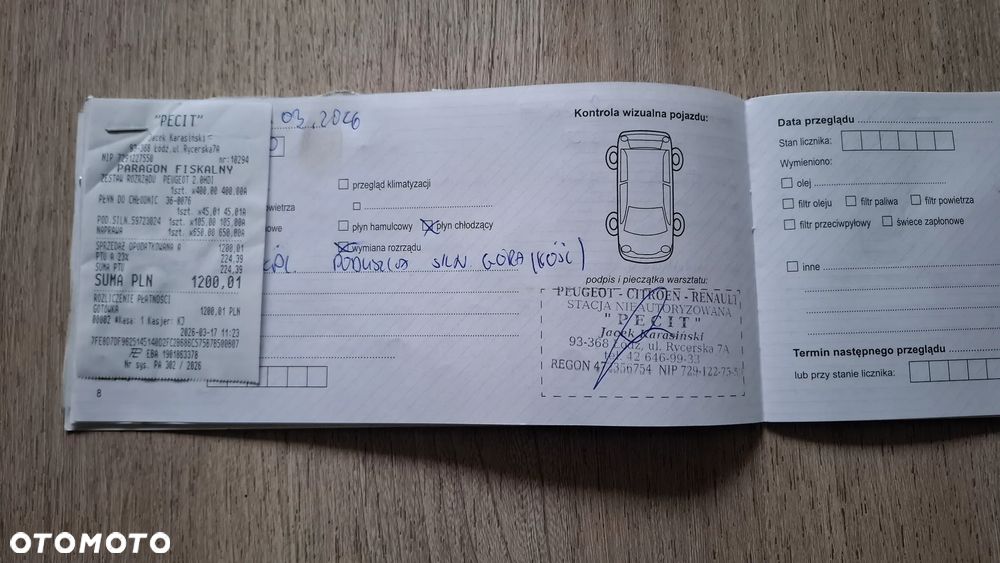 "PECIT"
Jacek Karasiński
93-368 Łódź,ul. Rycerska7A
NIP 7291227550 nr:10294
PARAGON FISKALNY
ZESTAW ROZRZĄDU PEUGEOT 2.0HDI
1szt. x400.00 400.00A
PŁYN DO CHŁODNIC 36-0076
1szt. x45,01 45,01A
POD.SILN.59723024 1szt. x105.00 105.00A
NAPRAWA 1szt.x650.00 650.00A
SPRZEDAŻ OPODATKOWANA A 1200,01
PTU A 23% 224,39
SUMA PTU 224,39
SUMA PLN 1200,01
ROZLICZENIE PŁATNOŚCI
GOTÓWKA 1200,01 PLN
00002 #Kasa: 1 Kasjer: KJ
2026-03-17 11:23
EBA 1901863378
Nr sys. PA 302 / 2026
03.2026
przegląd klimatyzacji
płyn hamulcowy
płyn chłodzący
wymiana rozrządu
PODUSZKA SILN GÓRA (KOŚĆ)
8
Kontrola wizualna pojazdu:
podpis i pieczątka warsztatu:
PEUGEOT - CITROEN - RENAULT
STACJA NIEAUTORYZOWANA
"PECIT"
Jacek Karasiński
93-368 Łódź, ul. Rycerska 7A
tel. 42 646-99-33
Data przeglądu
Stan licznika:
Wymieniono:
olej
filtr oleju
filtr paliwa
filtr powietrza
filtr przeciwpyłowy
świece zapłonowe
inne
Termin następnego przeglądu
lub przy stanie licznika:
OTOMOTO